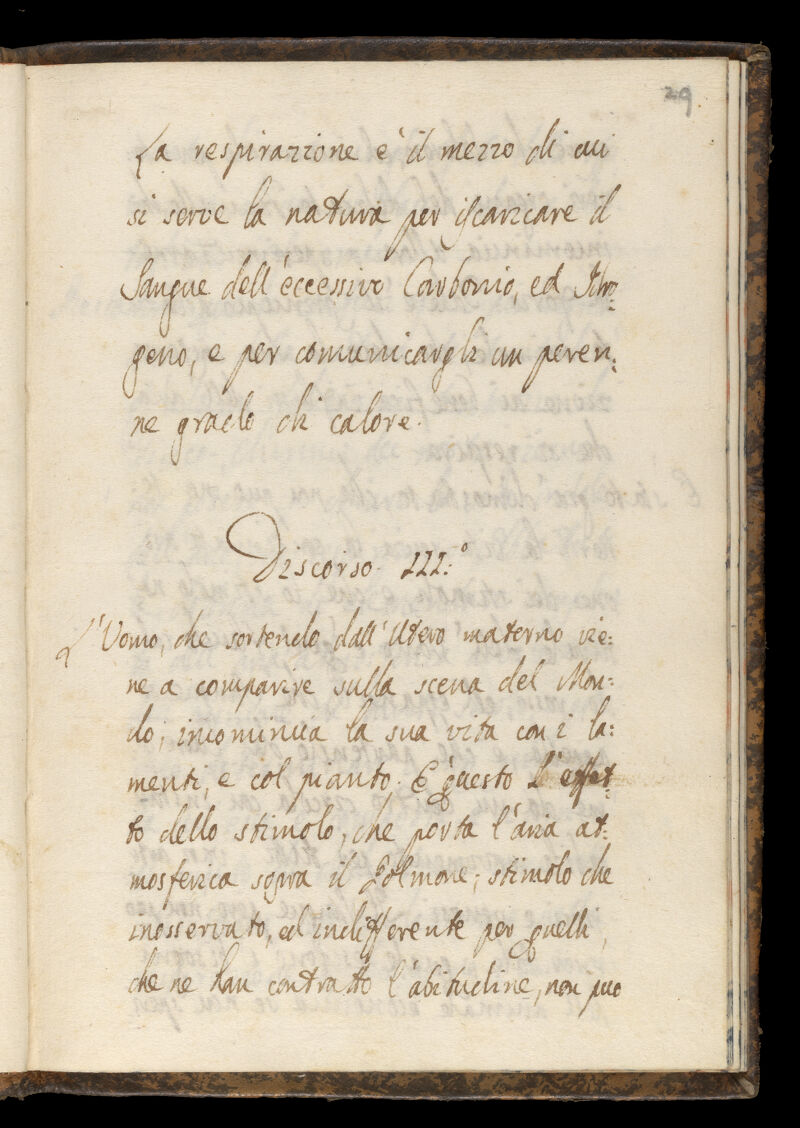 29
La respirazione è il mezzo di cui
si serve la natura per iscaricare il
Sangue dell'eccessivo Carbonio, ed Idro=
geno, e per comunicargli un peren=
ne grado di calore.
Discorso III.°
L'Uomo, che sortendo dall'Utero materno vie=
ne a comparire sulla scena del Mon=
do, incomincia la sua vita con i la=
menti, e col pianto. È questo l'effet=
to dello stimolo, che porta l'aria at=
mosferica sopra il Polmone; stimolo che
inosservato, ed indifferente per quelli,
che ne han contratto l'abitudine, non puo